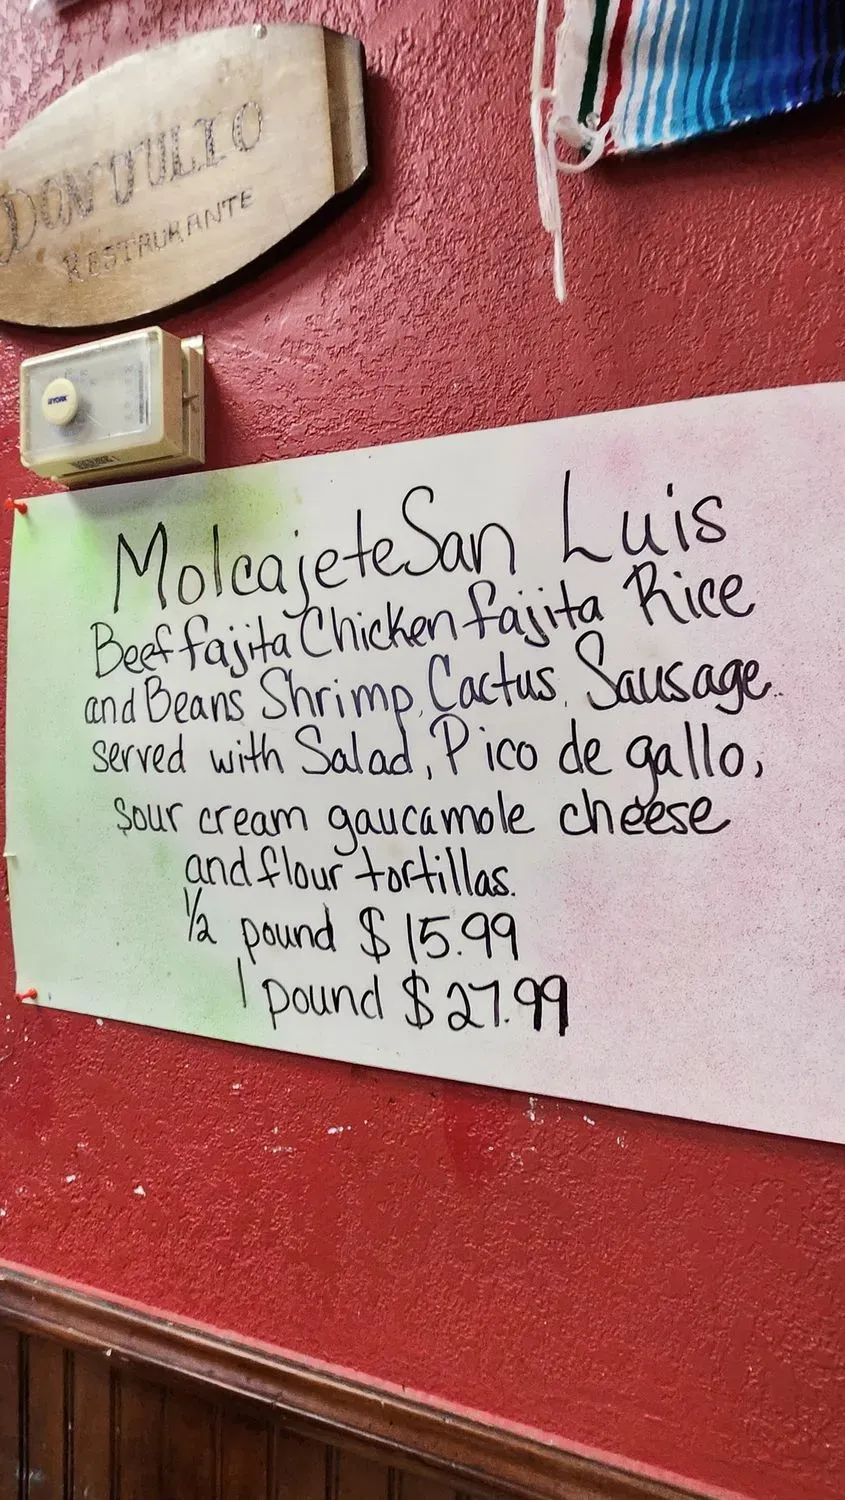 DON JULIO
RESTAURANTE
YORK
Molcajete San Luis
Beef fajita Chicken fajita Rice
and Beans Shrimp, Cactus, Sausage
served with Salad, Pico de gallo,
sour cream gaucamole cheese
and flour tortillas.
1/2 pound $15.99
1 pound $27.99